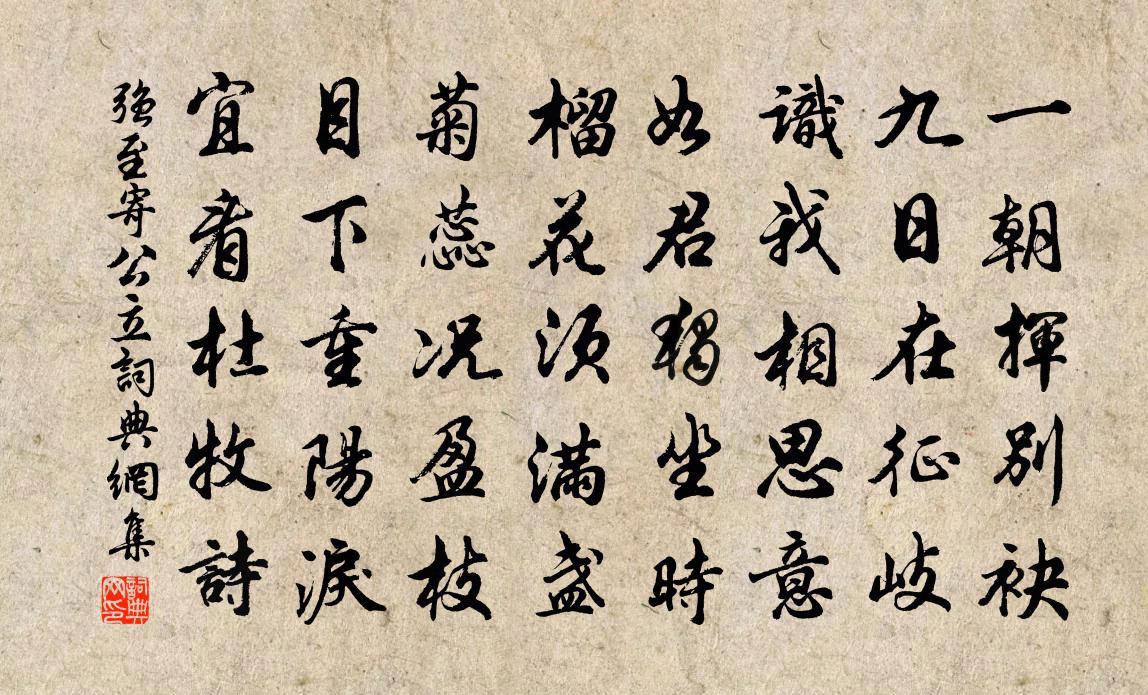 一朝揮別袂
九日在征岐
識我相思意
如君獨坐時
榴花須滿盏
菊蕊況盈枝
目下重陽淚
宜看杜牧詩
強至寄公立詞典網集
詞典
网印